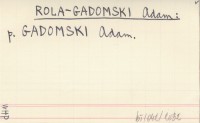 ROLA-GADOMSKI Adam:
p. GADOMSKI Adam.